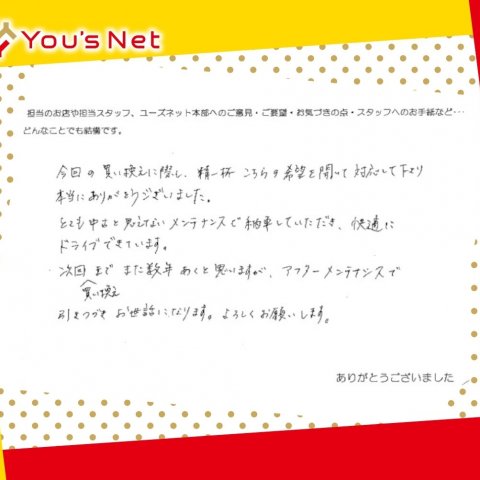 You's Net
担当のお店や担当スタッフ、ユーズネット本部へのご意見・ご要望・お気づきの点・スタッフへのお手紙など…
どんなことでも結構です。
今回の買い換えに際し、精一杯こちらの希望を聞いて対応して下さり
本当にありがとうございました。
とても中古と思えないメンテナンスで納車していただき、快適に
ドライブできています。
次回までまた数年あくと思いますが、アフターメンテナンスで
買い換え
引きつづきお世話になります。よろしくお願いします。
ありがとうございました